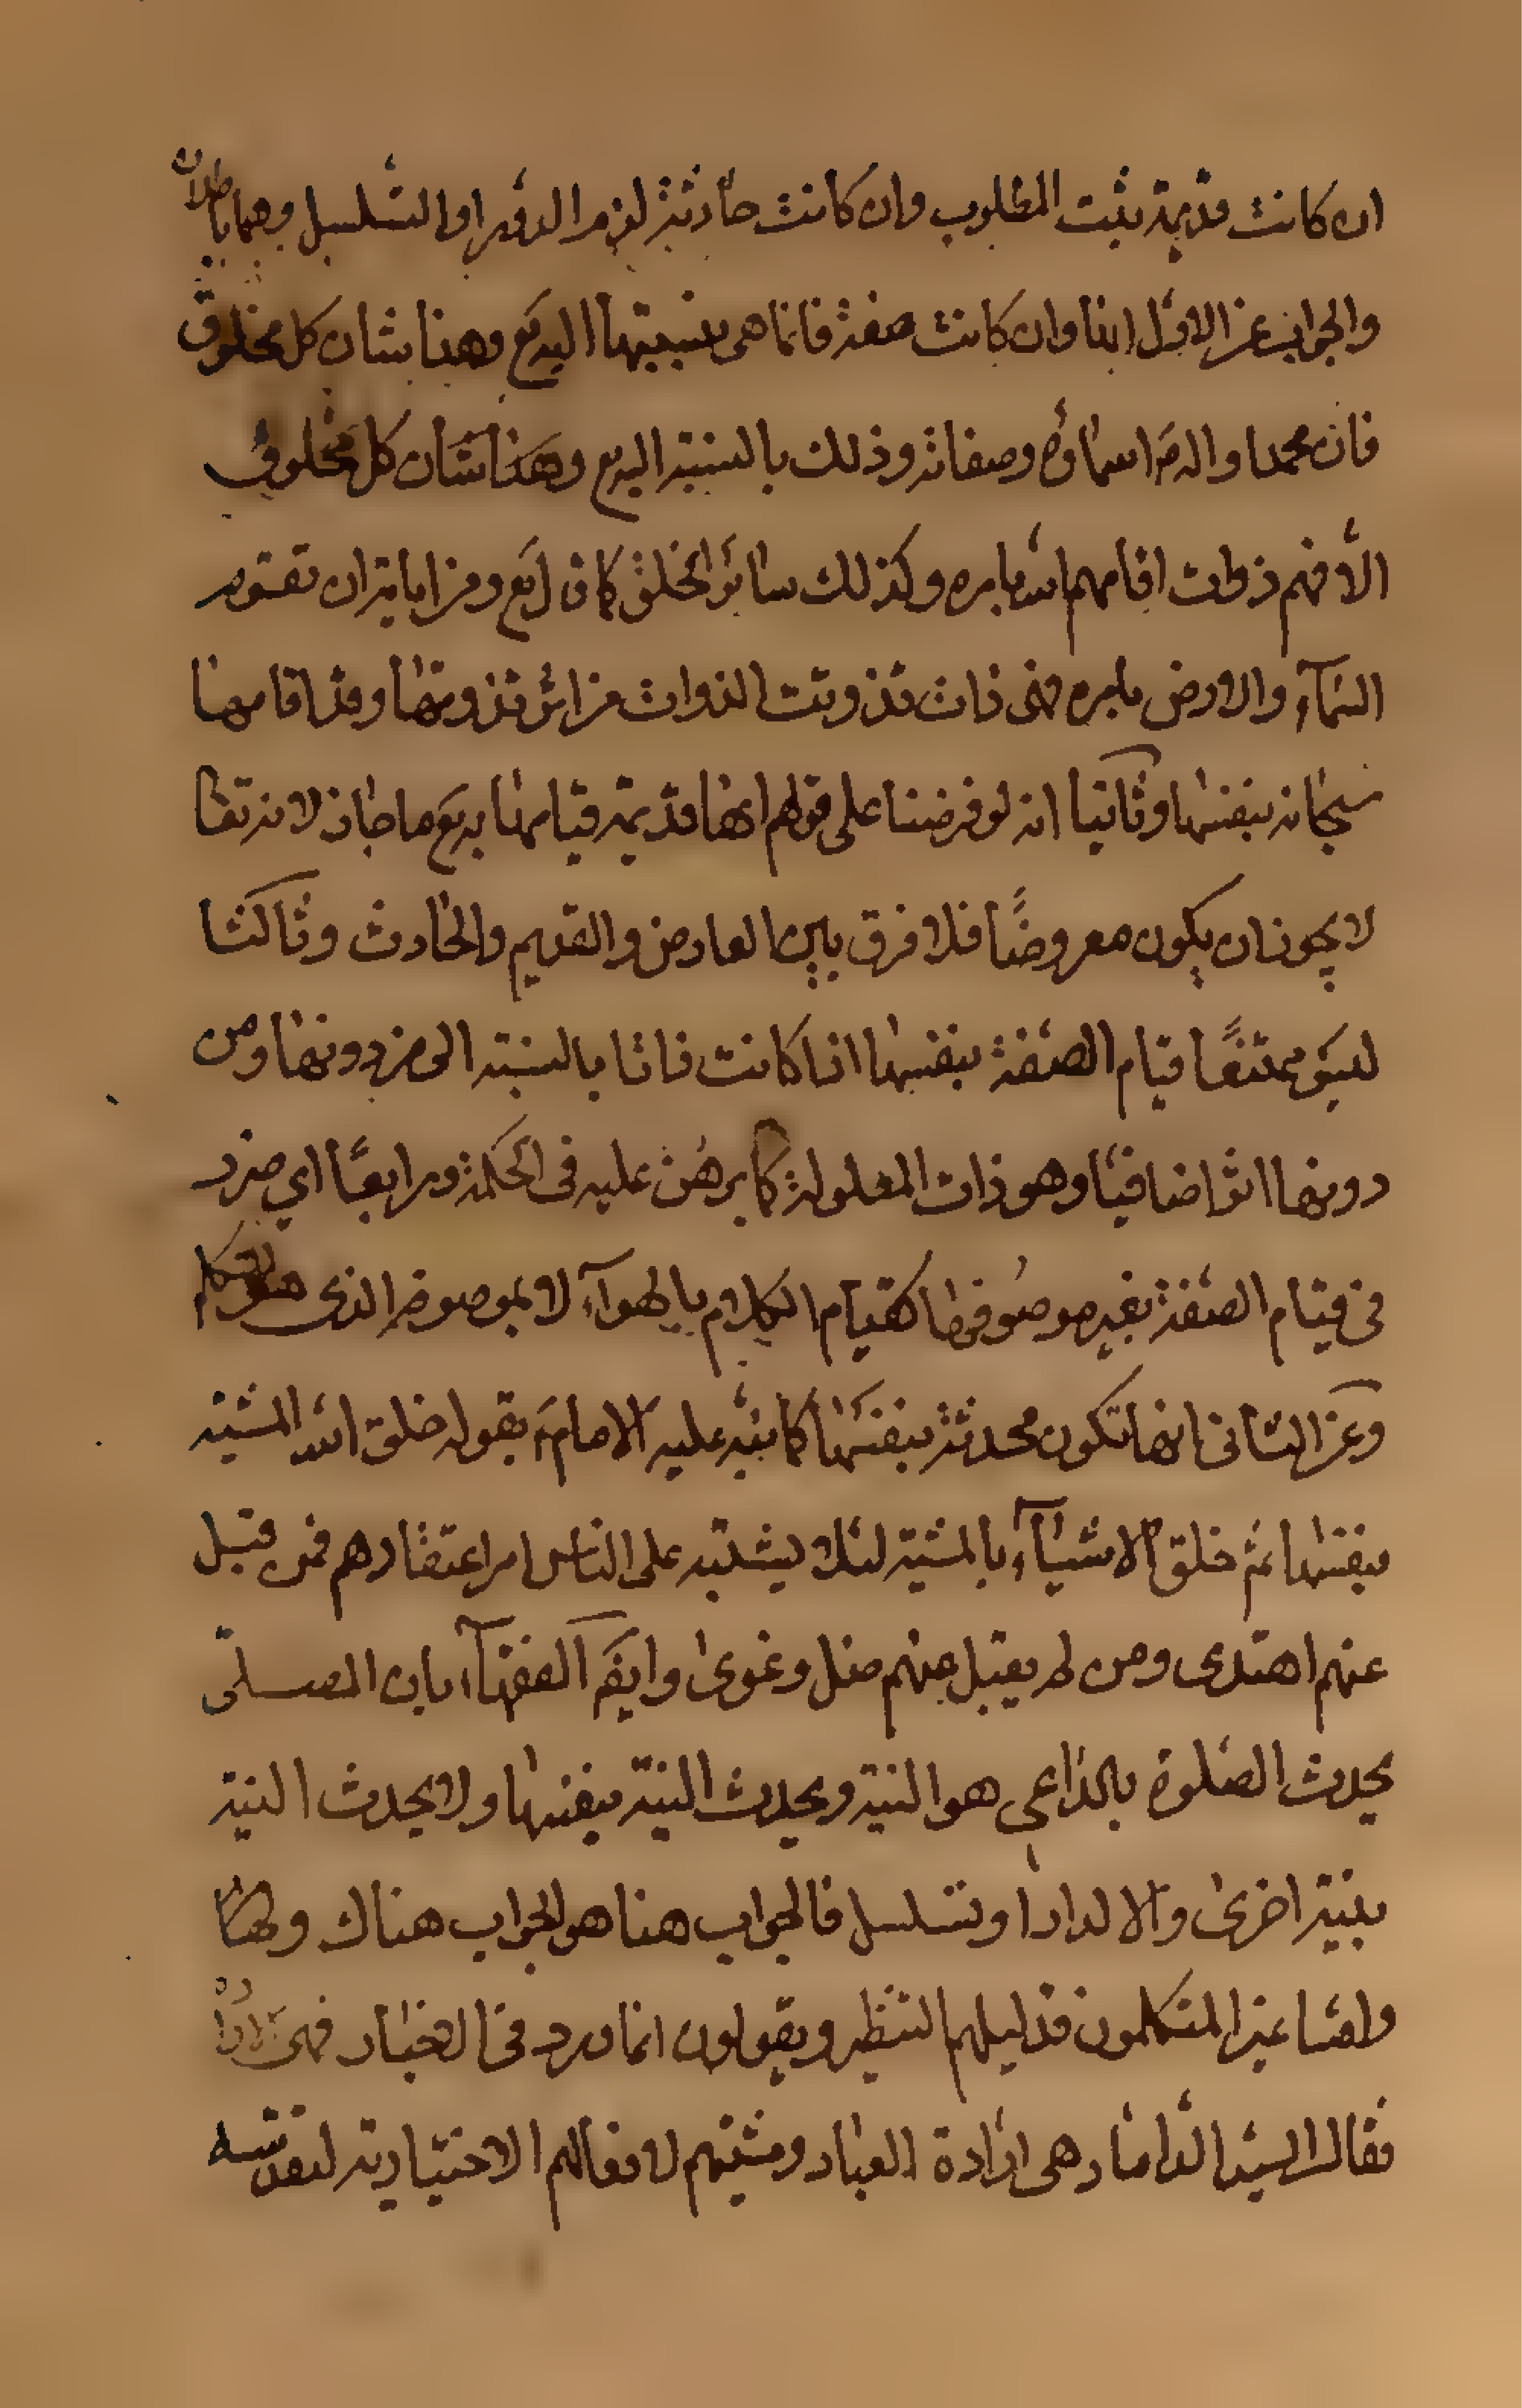 ان كانت قديمة ثبت المطلوب وان كانت حادثة لزم الدور او التسلسل وهما باطلان
والجواب عن الاول انها وان كانت صفة فانما هى بنسبتها اليه تع وهذا شان كل مخلوق
فان محمدا واله ص اسماؤه وصفاته وذلك بالنسبة اليه تع وهذا شان كل مخلوق
الا فهم ذوات اقامهم الله بامره وكذلك سائر الخلق كما قال تع ومن اياته ان تقوم
السمآء والارض بامره فهى ذات تذوتت الذوات من اثر تذوتها وقد اقامها
سبحانه بنفسها وثانيا انه لو فرضنا على قولهم انها قديمة قيامها به تع ما جاز لانه تعا
لا يجوز ان يكون معروضًا فلا فرق بين العارض والقديم والحادث وثالثا
ليس ممتنعًا قيام الصفة بنفسها اذا كانت ذاتا بالنسبة الى من دونها ومن
دونها اثرا ضافيا وهو ذات المعلولة كما برهن عليه فى الحكمة ورابعًا اي ضرر
فى قيام الصفة بغير موصوفها كقيام الكلام بالهوآء لا بموصوفه الذى هو المتكلم
وعن الثانى انها تكون محدثة بنفسها كما نبّه عليه الامام ع بقوله خلق الله المشية
بنفسها ثم خلق الاشيآء بالمشية لئلا يشتبه على الناس امر اعتقادهم فمن قبل
عنهم اهتدى ومن لم يقبل عنهم ضل وغوى وايضا الفقهآء بان المصلى
يحدث الصلوة بالداعى هو النية ويحدث النية بنفسها ولا يحدث النية
بنية اخرى والا لدار او تسلسل فالجواب هنا هو الجواب هناك ولهذا
واما غير المتكلمون فدليلهم النظر ويقولون انما ورد فى الاخبار فهى
فقال السيد الداماد هى ارادة العباد ومشيتهم لافعالهم الاختيارية لتقدسه